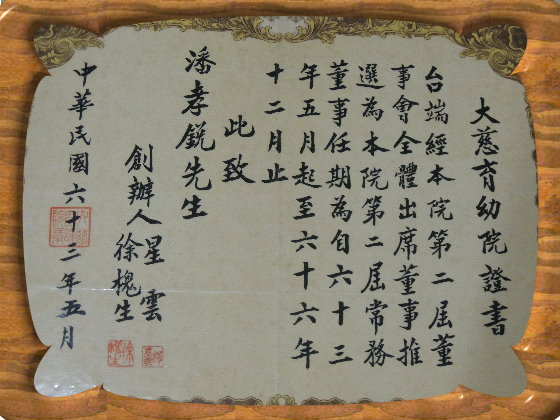 大慈育幼院證書
台端經本院第二屆董
事會全體出席董事推
選為本院第二屆常務
董事任期為自六十三
年五月起至六十六年
十二月止
此致
潘孝銳先生
創辦人星雲
徐槐生
中華民國六十三年五月